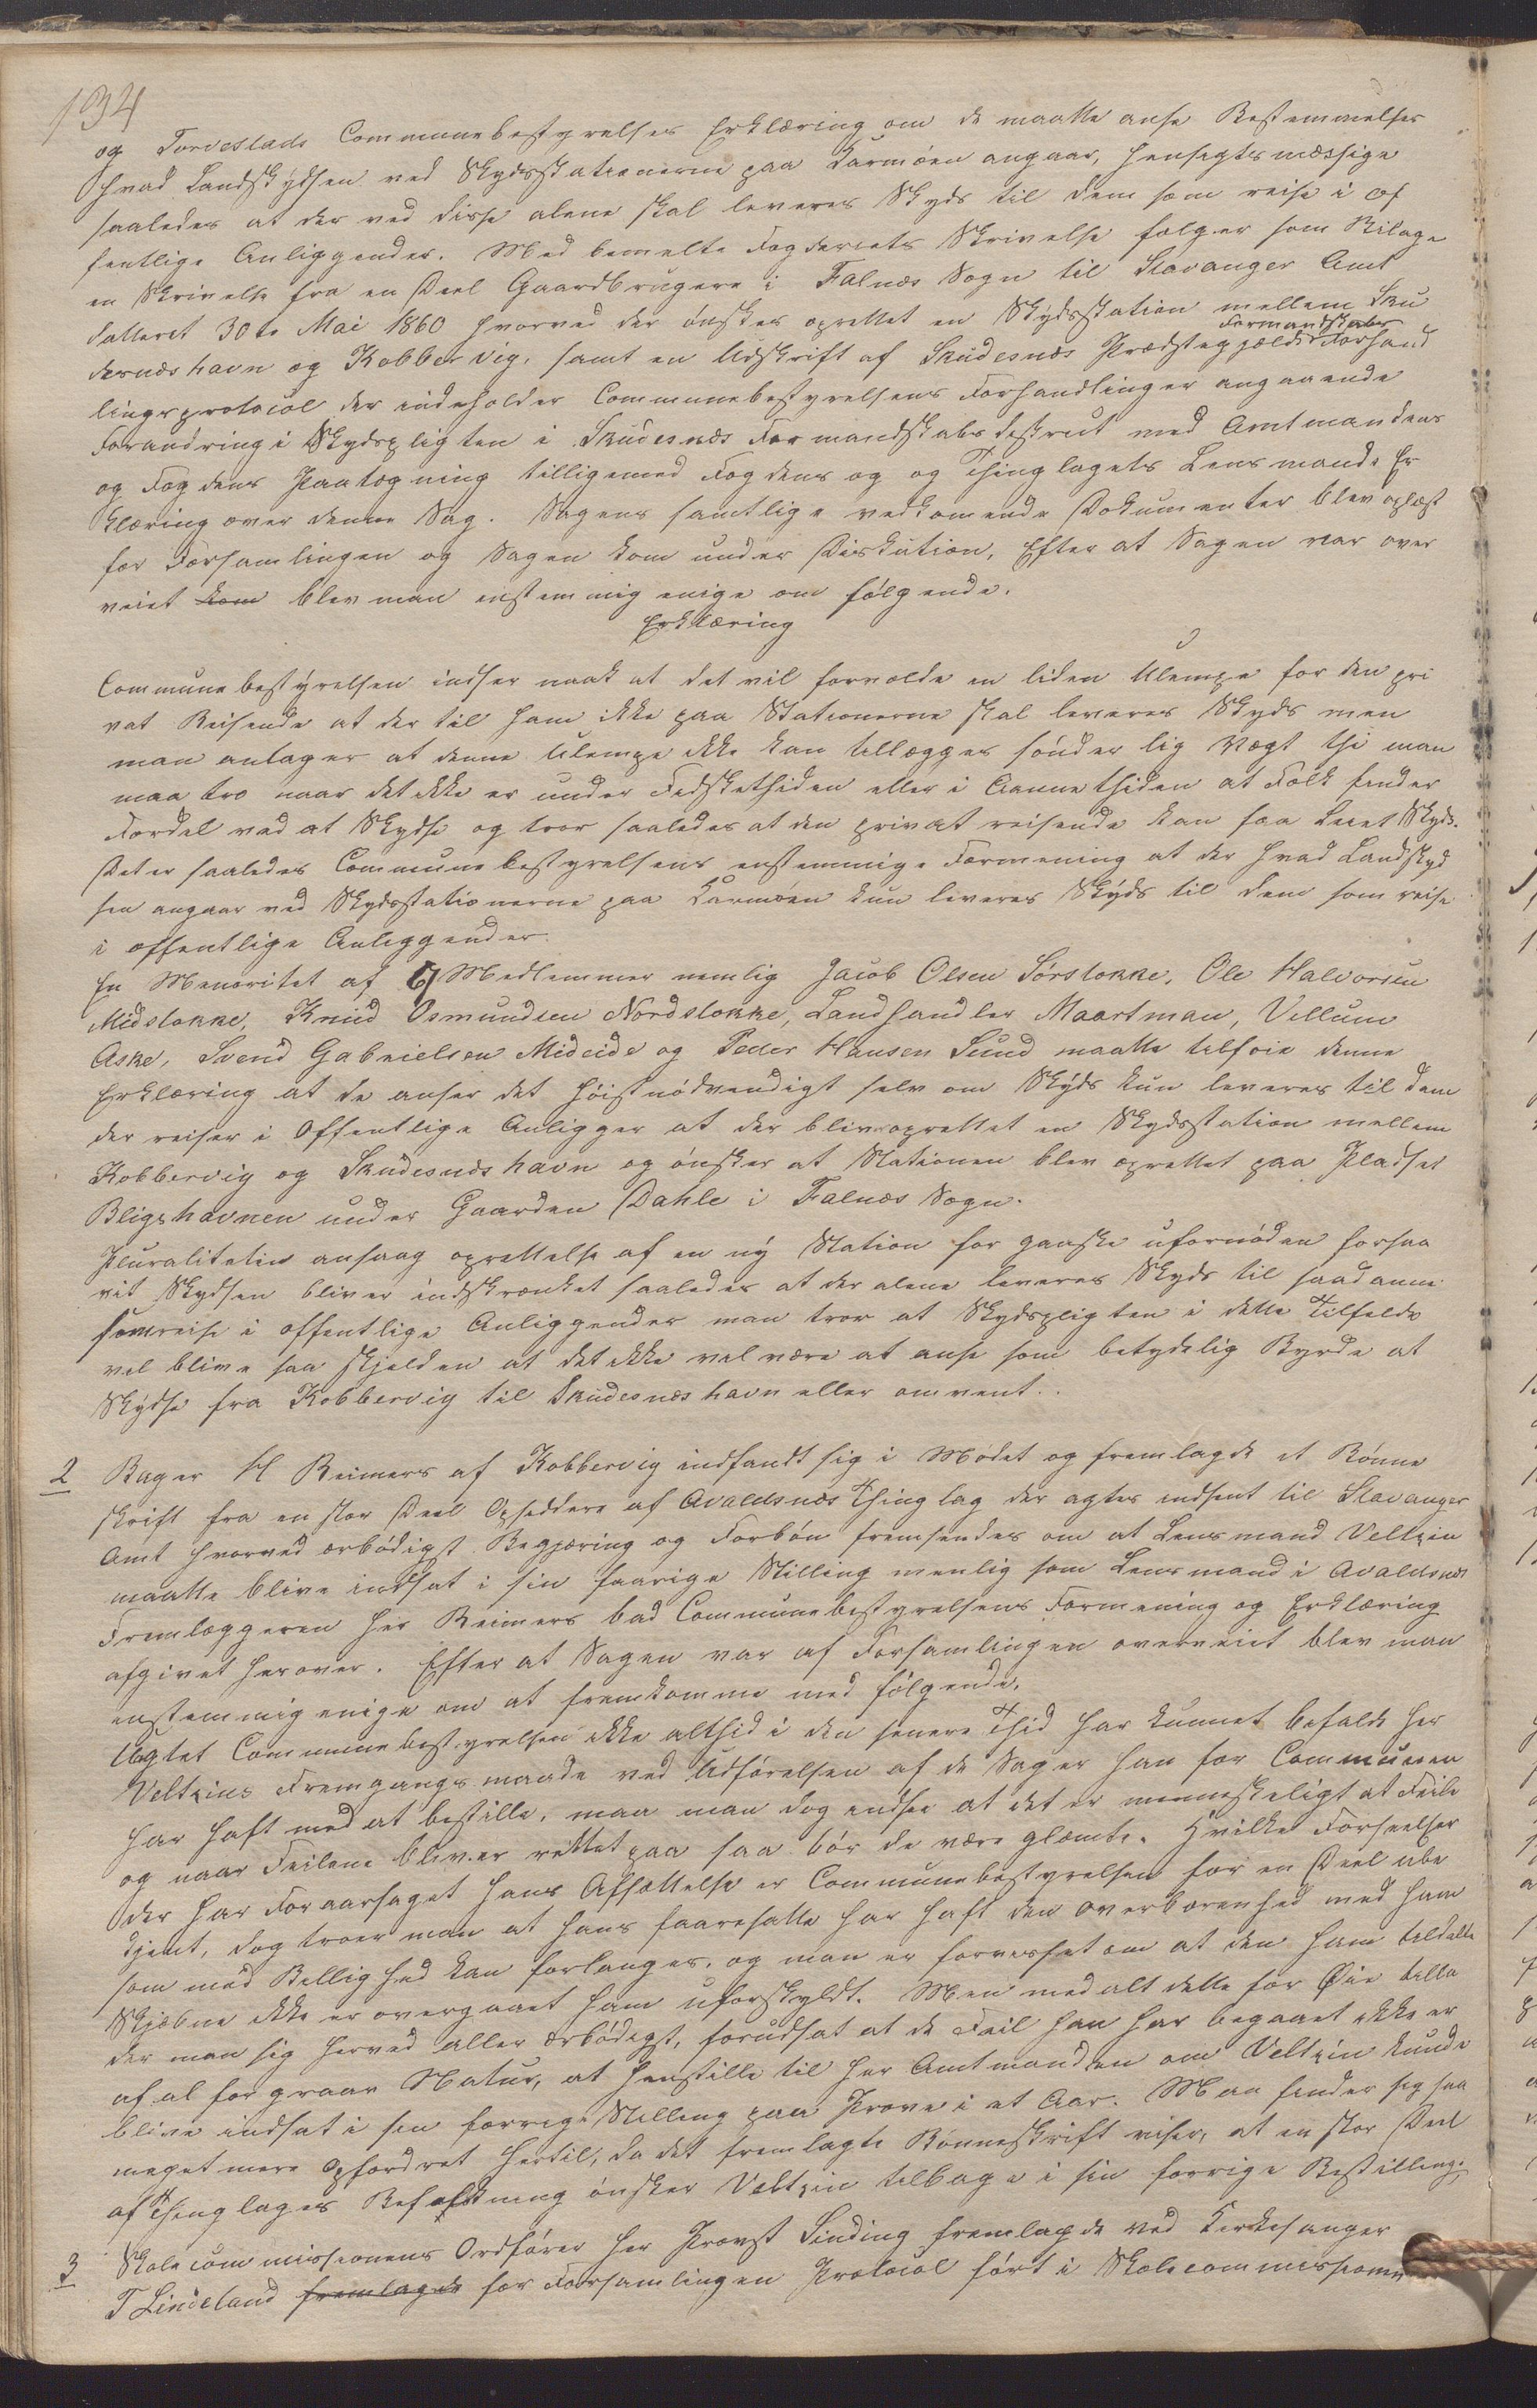 134
og Torvestads Communebestyrelses Erklæring om de maatte anse Bestemmelses
hvad Landskydsen ved Skydsstationerne paa Karmöen angaar, hensigtsmæssige
saaledes at der ved disse alene skal leveres Skyds til dem som reise i of
fentlige Anliggender. Med bemelte Fogderiets Skrivelse fölger som Bilage
en Skrivelse fra en Deel Gaardbrugere i Falnæs Sogn til Stavanger Amt
datteret 30te Mai 1860 hvorved der önskes oprettet en Skydsstation mellem Sku
desnæshavn og Kobbervig, samt en Udskrift af Skudesnæs Præstegjælds Formandskabs Forhand
lingsprotocol der indeholder Communebestyrelsens Forhandlinger angaaende
Forandring i Skydspligten i Skudesnæs Formandskabsdestrict med Amtmandens
og Fogdens Paategning tilligemed Fogdens og og Thinglagets Lensmands Er
klæring over denne Sag. Sagens samtlige vedkomende Dokumenter blev oplæst
for Forsamlingen og Sagen kom under Diskution, Efter at Sagen var over
veiet kom blev man enstemmig enige om fölgende.
Erklæring
Communebestyrelsen indser nock at det vil forvolde en liden Ulempe for den pri
vat Reisende at der til ham ikke paa Stationerne skal leveres Skyds men
man antager at denne Ulempe ikke kan tillægges sönderlig Vægt thi man
maa tro naar det ikke er under Fedskethiden eller i Aannethiden at Folk finder
Fordel ved at Skydse og tror saaledes at den privat reisende kan faa Leiet Skyds.
Det er saaledes Communebestyrelsens enstemmige Formening at der hvad Landskyd
sen angaar ved Skydsstationerne paa Karmöen kun leveres Skyds til dem som reise
i offentlige Anleggender.
En Menoritet af 6 Medlemmer nemlig Jacob Olsen Sörstokke, Ole Halvorsen
Midstokke, Knud Osmundsen Nordstokke, Landhandler Maartman, Villum
Aske, Svend Gabrielsen Mideide og Peder Hansen Sund maatte tilföie denne
Erklæring at de anser det höistnödvendigt selv om Skyds kun leveres til dem
der reiser i Offentlige Anligger at der bliv oprettet en Skydsstation mellem
Kobbervig og Skudesnæshavn og önsker at Stationen blev oprettet paa Pladset
Bligshavnen under Gaarden Dahle i Falnæs Sogn.
Pluraliteten ansaag oprettelse af en ny Station for ganske ufornöden forsaa
vit Skydsen bliver indskrænket saaledes at der alene leveres Skyds til saadanne
som reise i offentlige Anliggender man tror at Skydspligten i dette Tilfelde
vel blive saa skjelden at det ikke vel være at anse som betydelig Byrde at
Skydse fra Kobbervig til Skudesnæshavn eller omvent.
2 Bager H Reimers af Kobbervig indfandt sig i Mödet og fremlagde et Bönne
skrift fra en stor Deel Opsiddere af Avaldsnæs Thinglag der agtes indsent til Stavanger
Amt hvorved ærbödigst Begjæring og Forbön fremsendes om at Lensmand Veltzin
maatte blive indsat i sin faarige Stilling nemlig som Lensmand i Avaldsnæs
Fremlæggeren Her Reimers bad Communebestyrelsens Formening og Erklæring
afgivet herover. Efter at Sagen var af Forsamlingen overveiet blev man
enstemmig enige om at fremkomme med fölgende.
Uagtet Communebestyrelsen ikke althid i den senere Thid har kunnet befalde Her
Veltzins Fremgangsmaade ved Udförelsen af de Sager han for Communen
har haft med at bestille, maa man dog indsee at det er menneskeligt at Feile
og naar Feilene bliver rettet paa saa bör de være glæmte. Hvilke Forseelser
der har Foraarsaget hans Afsættelse er Communebestyrelsen for en Deel ube
kjent, dog troer man at hans foaresatte har haft den Overbærenhed med ham
som med Billighed kan forlanges, og man er forvesset om at den ham tildelte
Skjæbne ikke er overgaaet ham uforskyldt. Men med alt dette for Öie tilla
der man sig herved aller ærbödigst, forudsat at de Feil han har begaaet ikke er
af al for graav Natur, at henstille til Her Amtmanden om Veltzin kunde
blive indsat i sin forrige Stilling paa Pröve i et Aar. Man finder sig saa
meget mere Opfordret hertil, da det fremlagte Bönneskrift viser, at en stor Deel
af Thinglages Befolkning önsker Veltzin tilbage i sin forrige Bestilling.
3 Skolecommissionens Ordförer Her Provst Sinding fremlagde ved Kirkesanger
T Lindeland fremlagde for Forsamlingen Protocol fört i Skolecommissionen